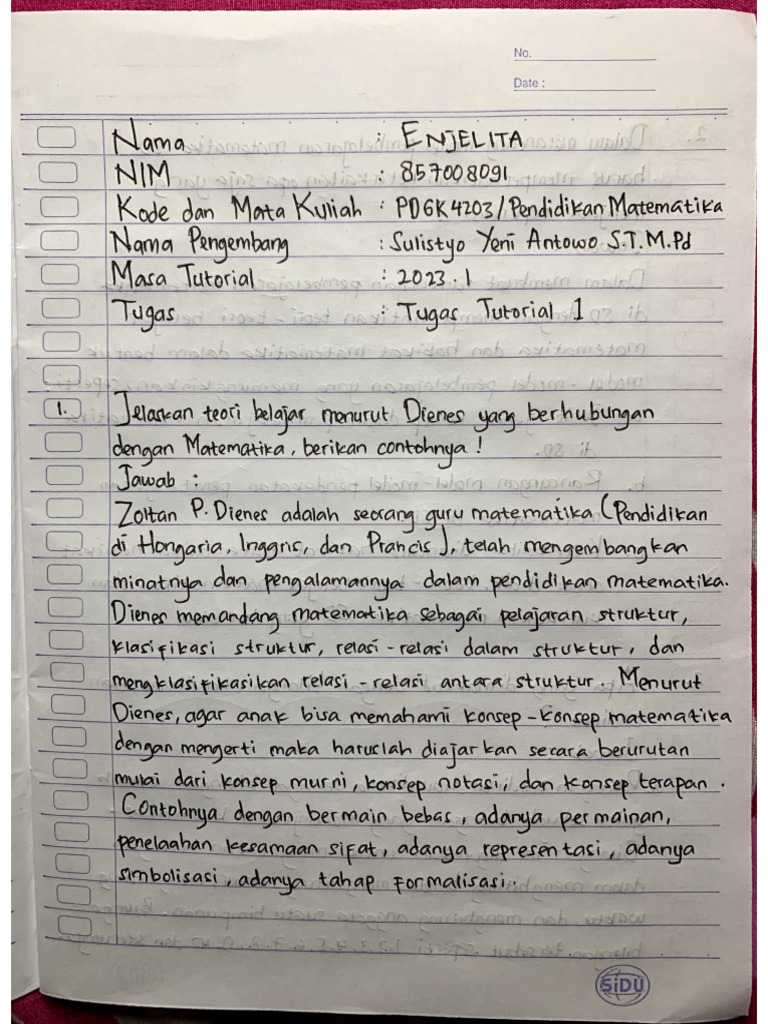 No.
Date :
Nama : ENJELITA
NIM : 857008091
Kode dan Mata Kuliah : PDGK4203/Pendidikan Matematika
Nama Pengembang : Sulistyo Yeni Antowo S.T.M.Pd
Masa Tutorial : 2023.1
Tugas : Tugas Tutorial 1
1. Jelaskan teori belajar menurut Dienes yang berhubungan
dengan Matematika, berikan contohnya !
Jawab :
Zoltan P. Dienes adalah seorang guru matematika (Pendidikan
di Hongaria, Inggris, dan Prancis), telah mengembangkan
minatnya dan pengalamannya dalam pendidikan matematika.
Dienes memandang matematika sebagai pelajaran struktur,
klasifikasi struktur, relasi-relasi dalam struktur, dan
mengklasifikasikan relasi-relasi antara struktur. Menurut
Dienes, agar anak bisa memahami konsep-konsep matematika
dengan mengerti maka haruslah diajarkan secara berurutan
mulai dari konsep murni, konsep notasi, dan konsep terapan.
Contohnya dengan bermain bebas, adanya permainan,
penelaahan kesamaan sifat, adanya representasi, adanya
simbolisasi, adanya tahap formalisasi.
SiDU